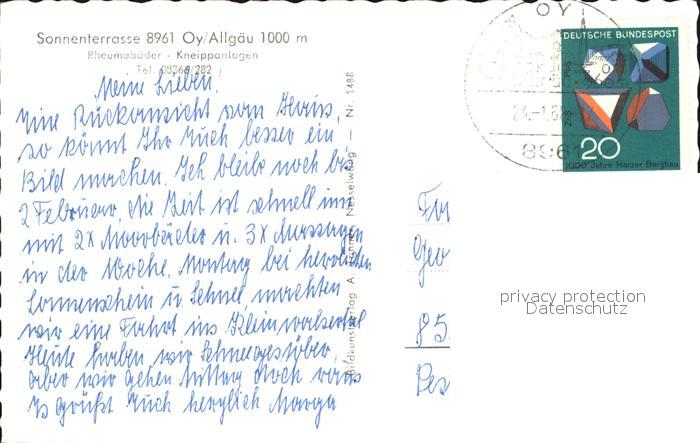 Sonnenterrasse 8961 Oy/Allgäu 1000 m
Rheumabäder - Kneippanlagen
Tel. 08366/282
Meine Lieben.
Eine Rückansicht vom Haus,
so könnt Ihr Euch besser ein
Bild machen. Ich bleibe noch bis
2 Februar, die Zeit ist schnell um
mit 2x Moorbäder u. 3x Massagen
in der Woche. Montag bei herrlichen
Sonnenschein u Schnee machten
wir eine Fahrt ins Kleinwalsertal
Heute haben wir Schneegestöber,
aber wir gehen Mittag doch raus
Es grüßt Euch herzlich Marga
Nesselwang — Nr. 1488
OY
24.-1.69
8961
DEUTSCHE BUNDESPOST
PbS
ZnS
20
1000 Jahre Harzer Bergbau
Geo
85
privacy protection
Datenschutz